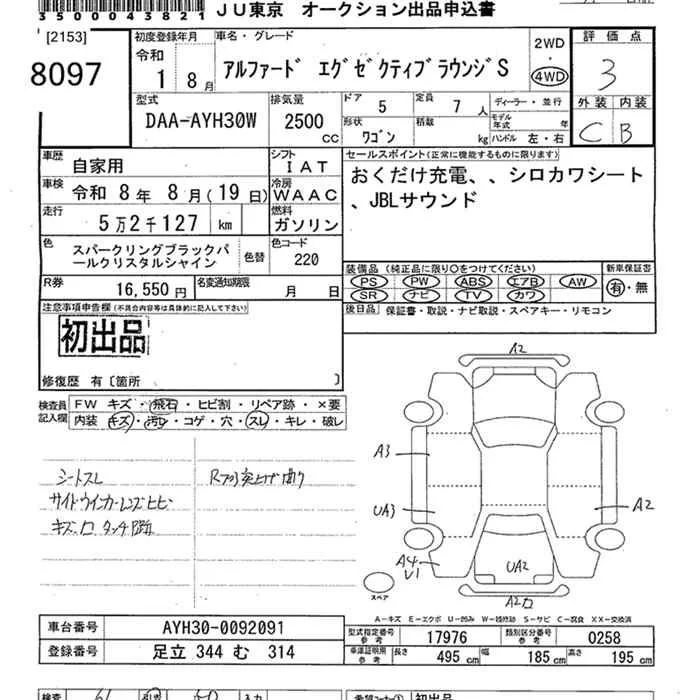 3500043821 JU東京 オークション出品申込書
[2153]
8097
初度登録年月
令和
1 8月
車名・グレード
アルファード エグゼクティブラウンジS
2WD
・
4WD
評価点
3
外装 内装
C B
型式
DAA-AYH30W
排気量
2500
CC
ドア 5
定員 7 人
形状 ワゴン
積載 kg
ディーラー・並行
モデル年式 年
ハンドル 左・右
車歴 自家用
シフト IAT
車検 令和 8年 8月(19日)
冷房 WAAC
走行 5万2千127 km
燃料 ガソリン
色 スパークリングブラックパールクリスタルシャイン
色替
色コード 220
R券 16,550円
名変通知期限 月 日
セールスポイント(正常に機能するものに限ります)
おくだけ充電、、シロカワシート
、JBLサウンド
装備品 (純正品に限り○をつけてください)
PS PW ABS エアB AW
SR ナビ TV カワ
新車保証書
有・無
後日品 保証書・取説・ナビ取説・スペアキー・リモコン
注意事項申告欄(不具合内容等は具体的に記入して下さい)
初出品
修復歴 有〔箇所 〕
検査員記入欄
FW キズ・飛石・ヒビ割・リペア跡・×要
内装 キズ・汚レ・コゲ・穴・スレ・キレ・破レ
シートスレ
サイドウインカーレンズヒビ
キズ、凹 タッチP跡
A2
A3
UA3
A2
A4
U1
UA2
A2凹
スペア
A-キズ E-エクボ U-凹み W-補修跡 S-サビ C-腐食 XX-交換済
車台番号 AYH30-0092091
登録番号 足立 344 む 314
型式指定番号 参考 17976
類別区分番号 参考 0258
車庫証明用 参考 長さ 495cm 幅 185cm 高さ 195cm
検査
入力
初出品